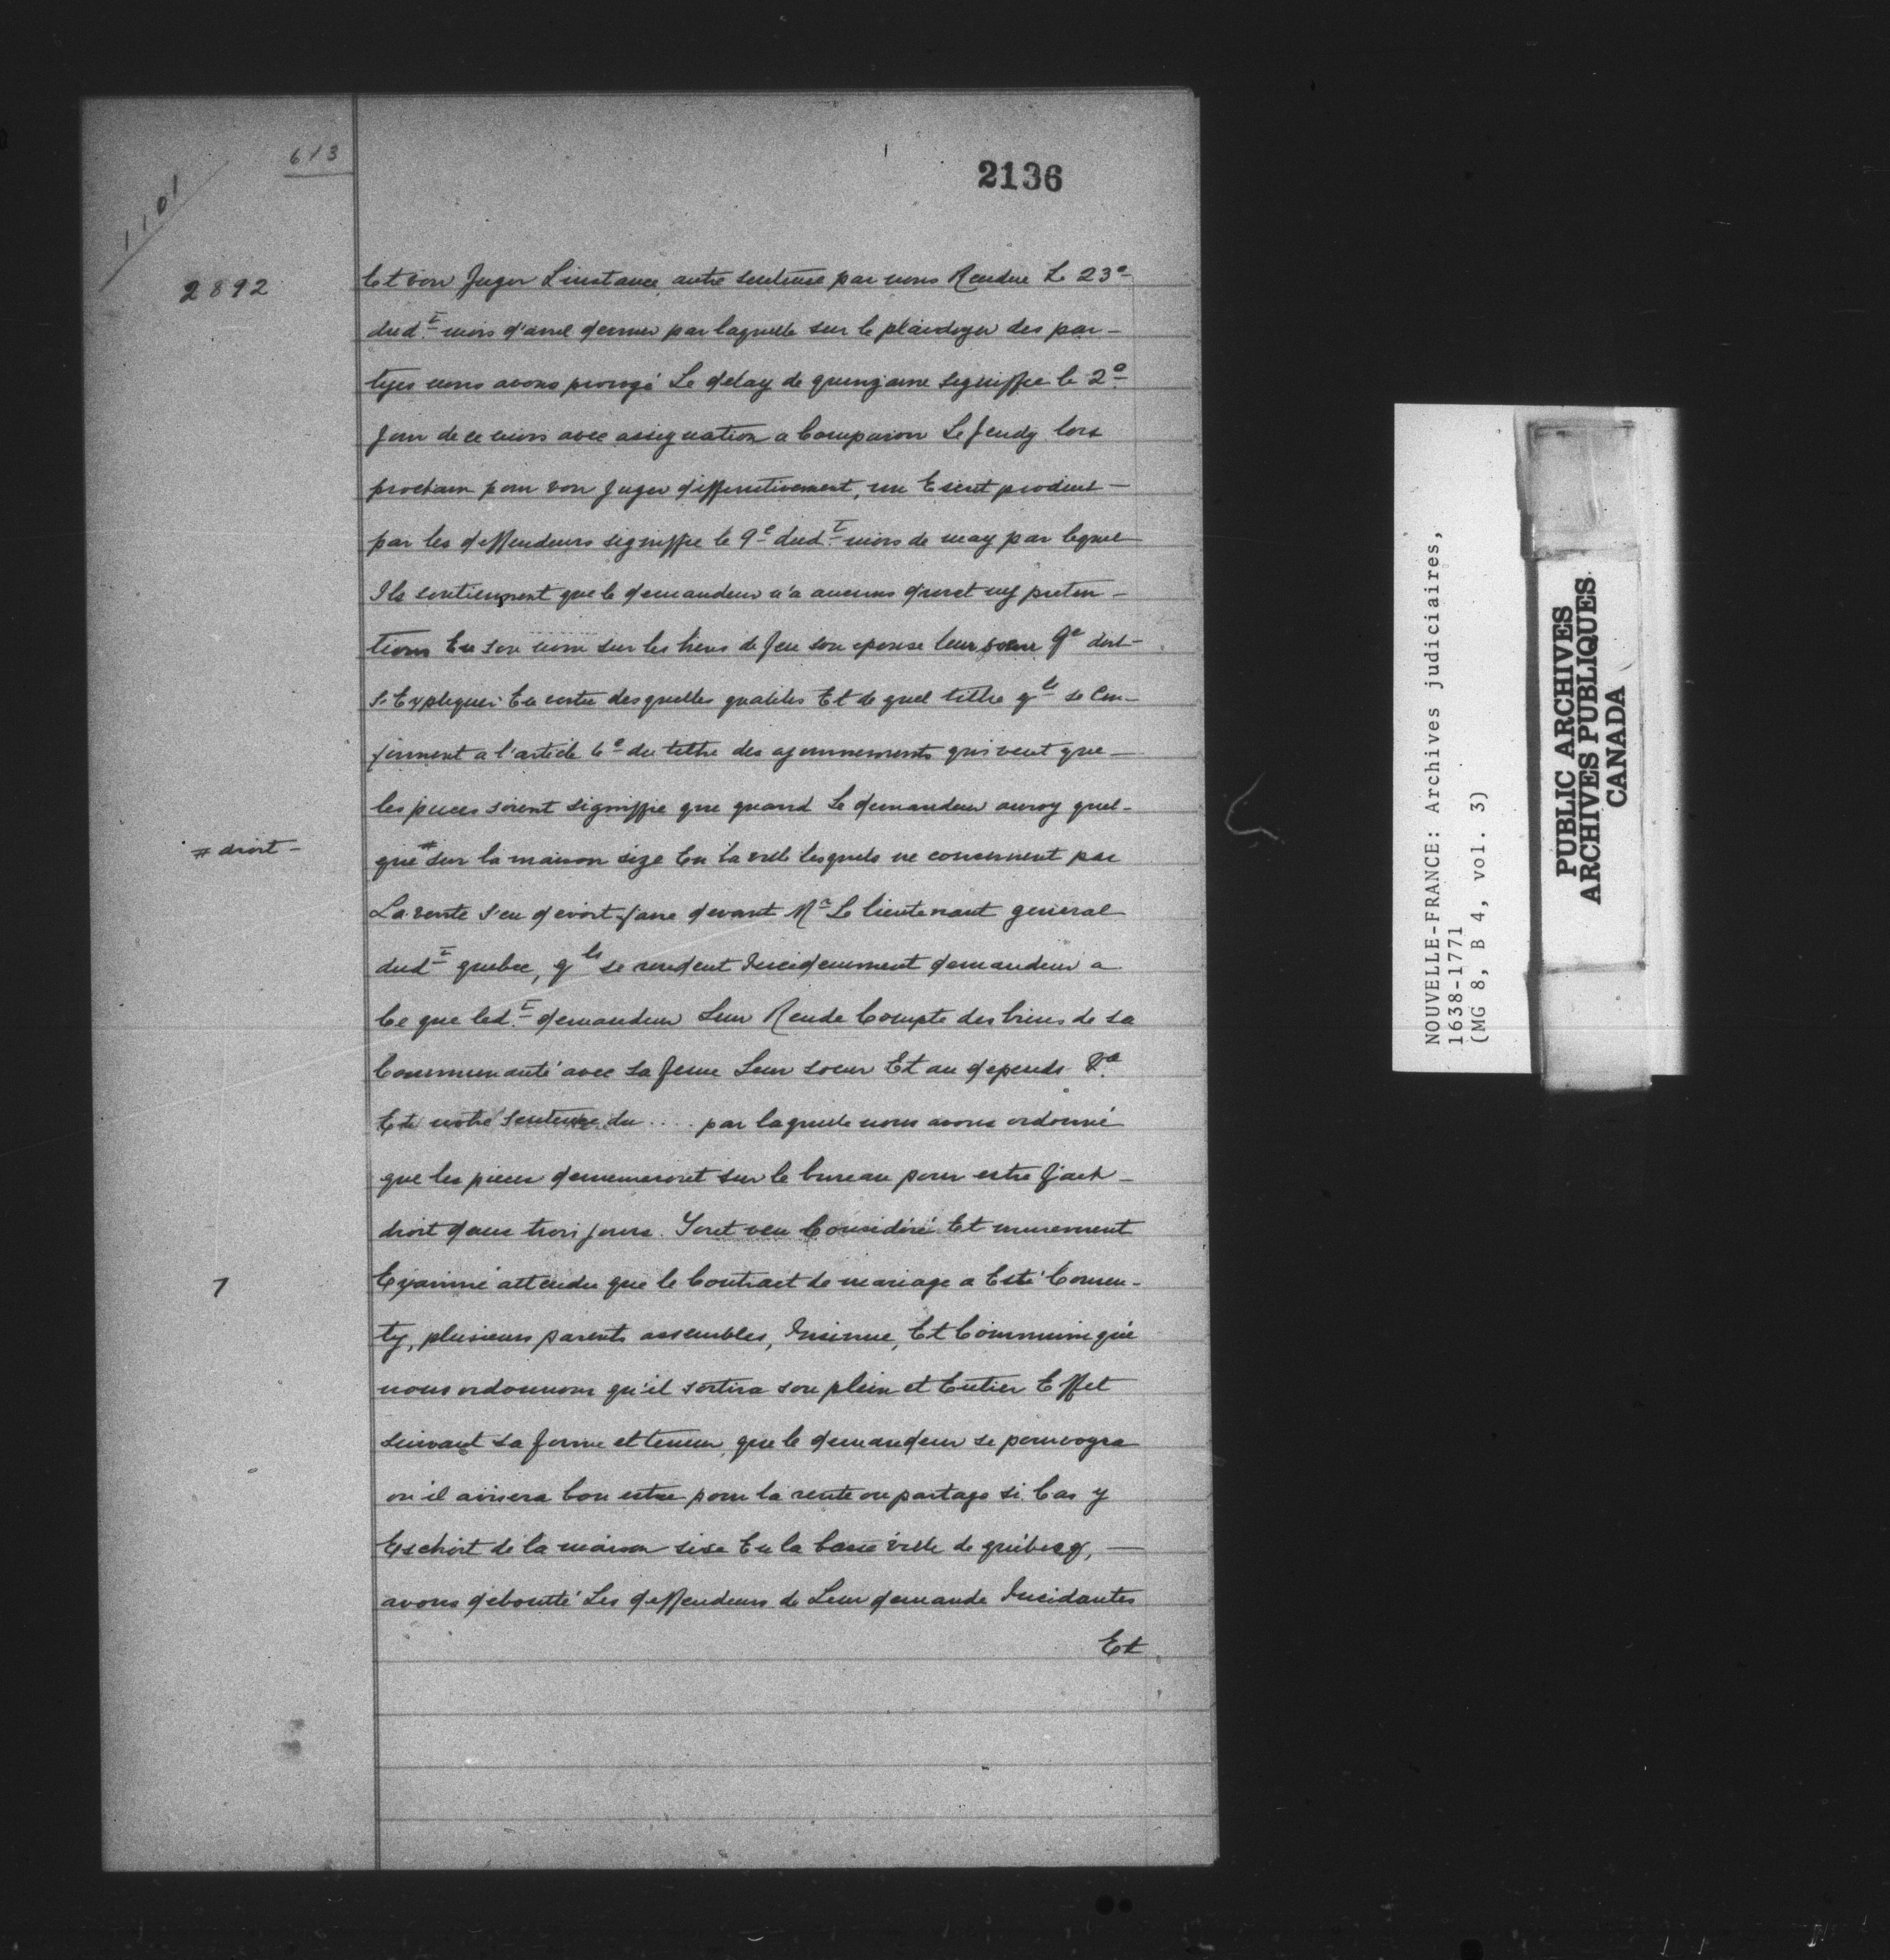 613
1101
2136
2892
Et voir Juger L'instance, autre sentence par nous Rendue Le 23e
dudt mois d'avril dernier par laquelle sur le plaidoyer des par-
tyes nous avons prorogé Le delay de quinzaine signiffiee le 2e
Jour de ce mois avec assignation a Comparoir Le Jeudy lors
prochain pour voir Juger diffinitivement, un Escrit produit
par les deffendeurs signiffie le 9e dudt mois de may par lequel
Ils soutiennent que le demandeur n'a aucuns droict ny preten-
tions En son nom sur les biens de feu son epouse leur soeur qe doit
S'Expliquer En vertu desquelles qualités Et de quel tiltre qls se Con-
forment a l'article 6e du tiltre des ajournements qui veut que
les pieces soient signiffié que quand Le demandeur auroy quel-
# droit -
que # sur la maison size En la ville lesquels ne concernent pas
La vente s'en devoit faire devant Mr Le lieutenant general
dudt quebec, qls se rendent Incidemment demandeur a
Ce que ledt demandeur Leur Rende Compte des biens de sa
Communauté avec sa feme Leur soeur Et au depends &a
Et notre Sentence du .... par laquelle nous avons ordonné
que les pieces demeureroit sur le bureau pour estre fait
droit dans trois jours. Tout veu Considéré Et murement
7
Examiné attendu que le Contract de mariage a Esté Consen-
ty, plusieurs parents assembles, Insinue, Et Communiqué
nous ordonnons qu'il sortira son plein et Entier Effet
suivant sa forme et teneur, que le demandeur se pourvoyra
ou il avisera bon estre pour la vente ou partage si Cas y
Eschoit de la maison sise En la basse ville de quebecq,
avons debouté Les deffendeurs de Leur demande Incidantes
Et
NOUVELLE-FRANCE: Archives judiciaires,
1638-1771
(MG 8, B 4, vol. 3)
PUBLIC ARCHIVES
ARCHIVES PUBLIQUES
CANADA